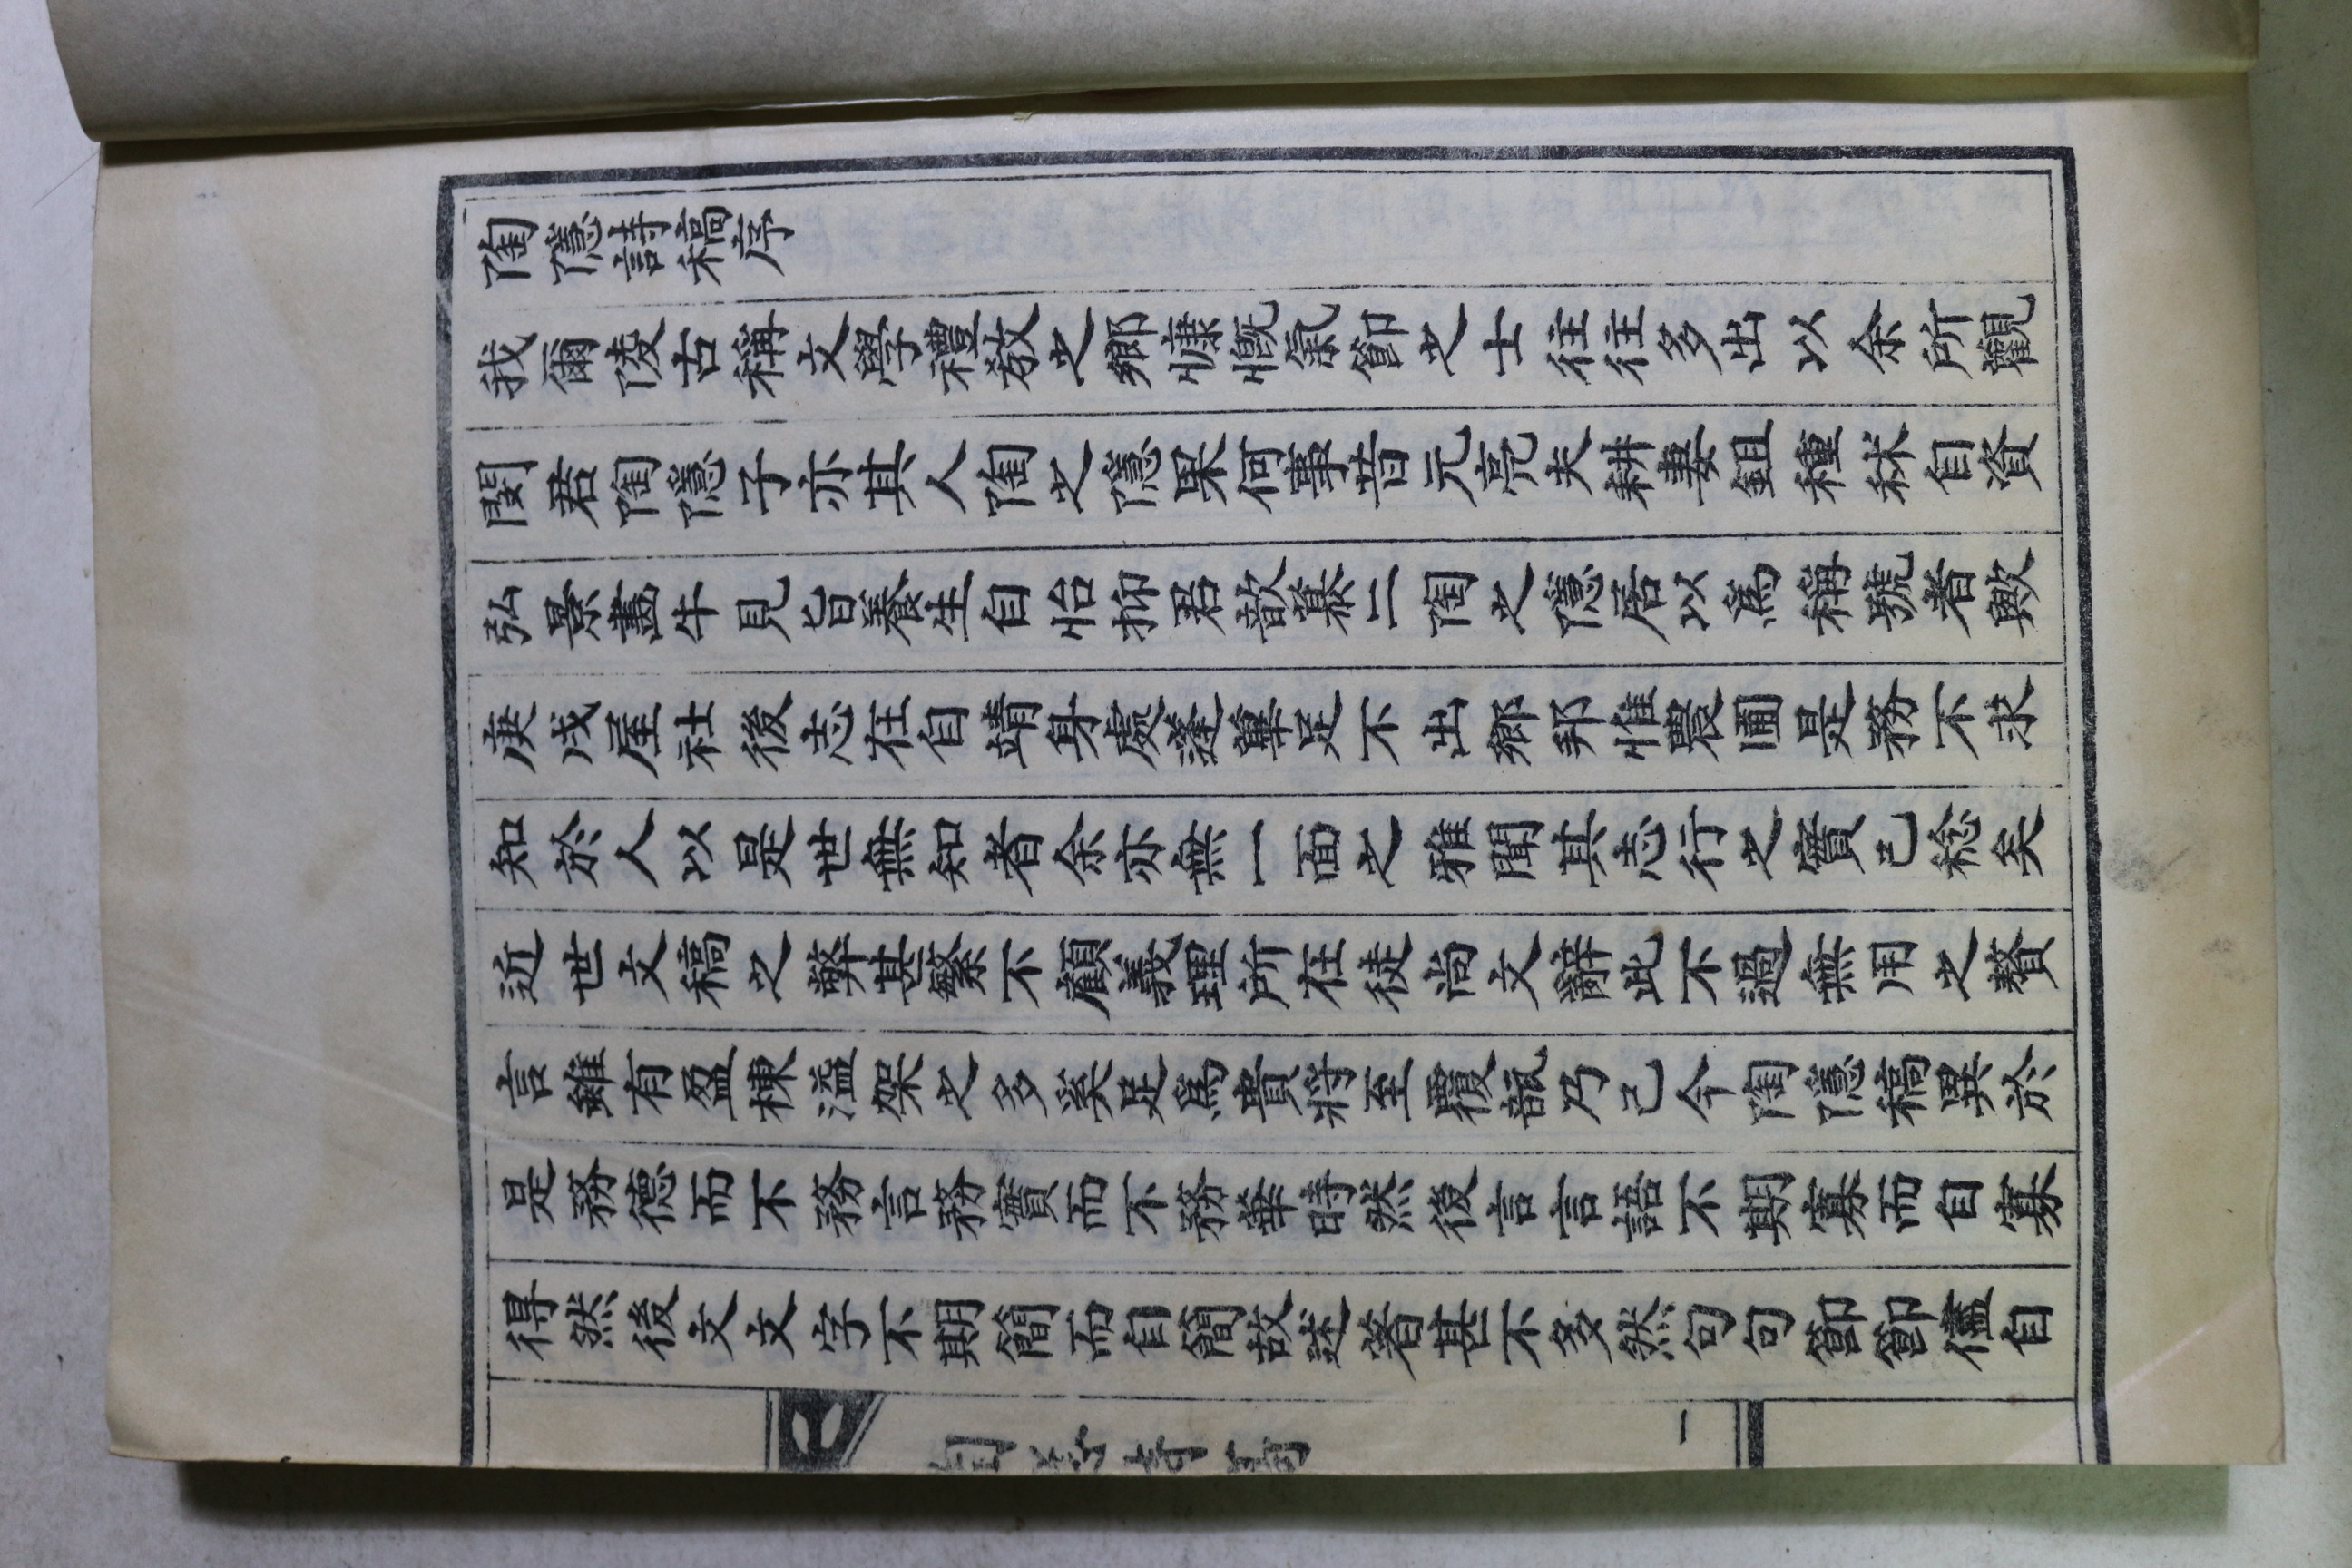 陶隱詩稿序
我爾陵古稱文學禮敎之鄕慷慨氣節之士往往多出以余所觀
閔君陶隱子亦其人陶之隱果何事昔元亮夫耕妻鋤種秫自資
弘景畵牛見旨養生自怡抑君歆慕二陶之隱居以爲稱號者歟
庚戌屋社後志在自靖身處蓬蓽足不出鄕邦惟農圃是務不求
知於人以是世無知者余亦無一面之雅聞其志行之實已稔矣
近世文稿之弊甚繁不顧義理所在徒尙文辭此不過無用之贅
言雖有盈棟溢架之多奚足爲貴將至覆瓿乃已今陶隱稿異於
是務德而不務言務實而不務華時然後言言語不期寡而自寡
得然後文文字不期簡而自簡故述著甚不多然句句節節儘自
陶隱詩稿
一